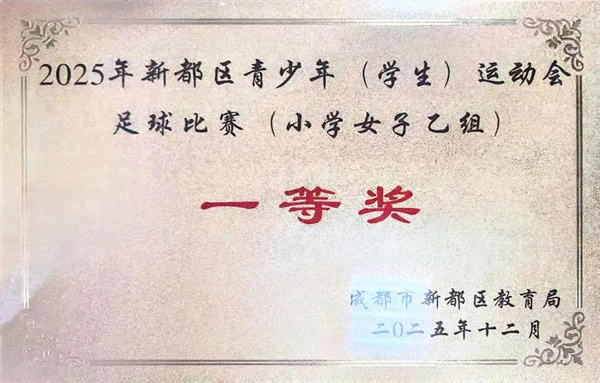 2025年新都区青少年（学生）运动会
足球比赛（小学女子乙组）
一等奖
成都市新都区教育局
二〇二五年十二月